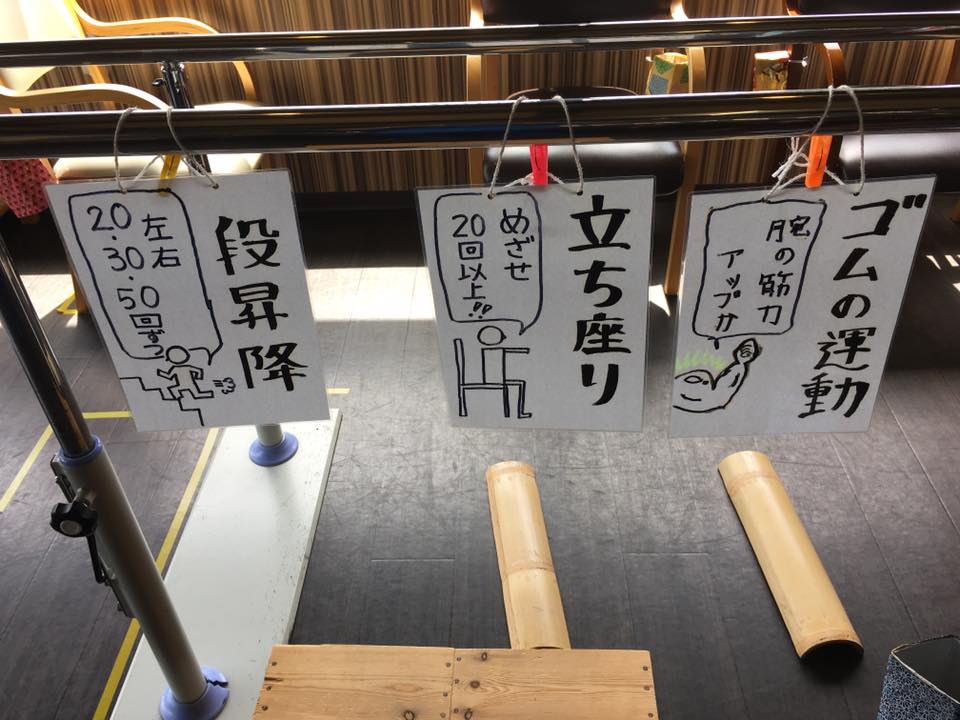 段昇降
左右
20・30・50回ずつ
立ち座り
めざせ
20回以上!!
ゴムの運動
腕の筋力
アップか